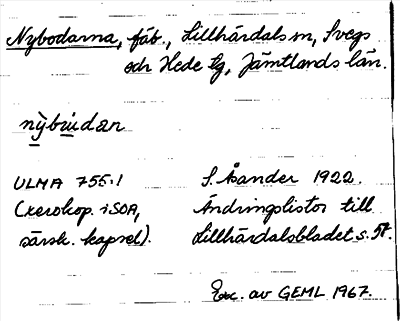 Nybodarna, fäb., Lillhärdals sn, Svegs
och Hede tg, Jämtlands län.
nỳbu̇dan
ULMA 755:1
(xerokop. i SOA,
särsk. kapsel).
S. Åsander 1922.
Ändringslistor till
Lillhärdalsbladet s. 57.
Exc. av GEML 1967.